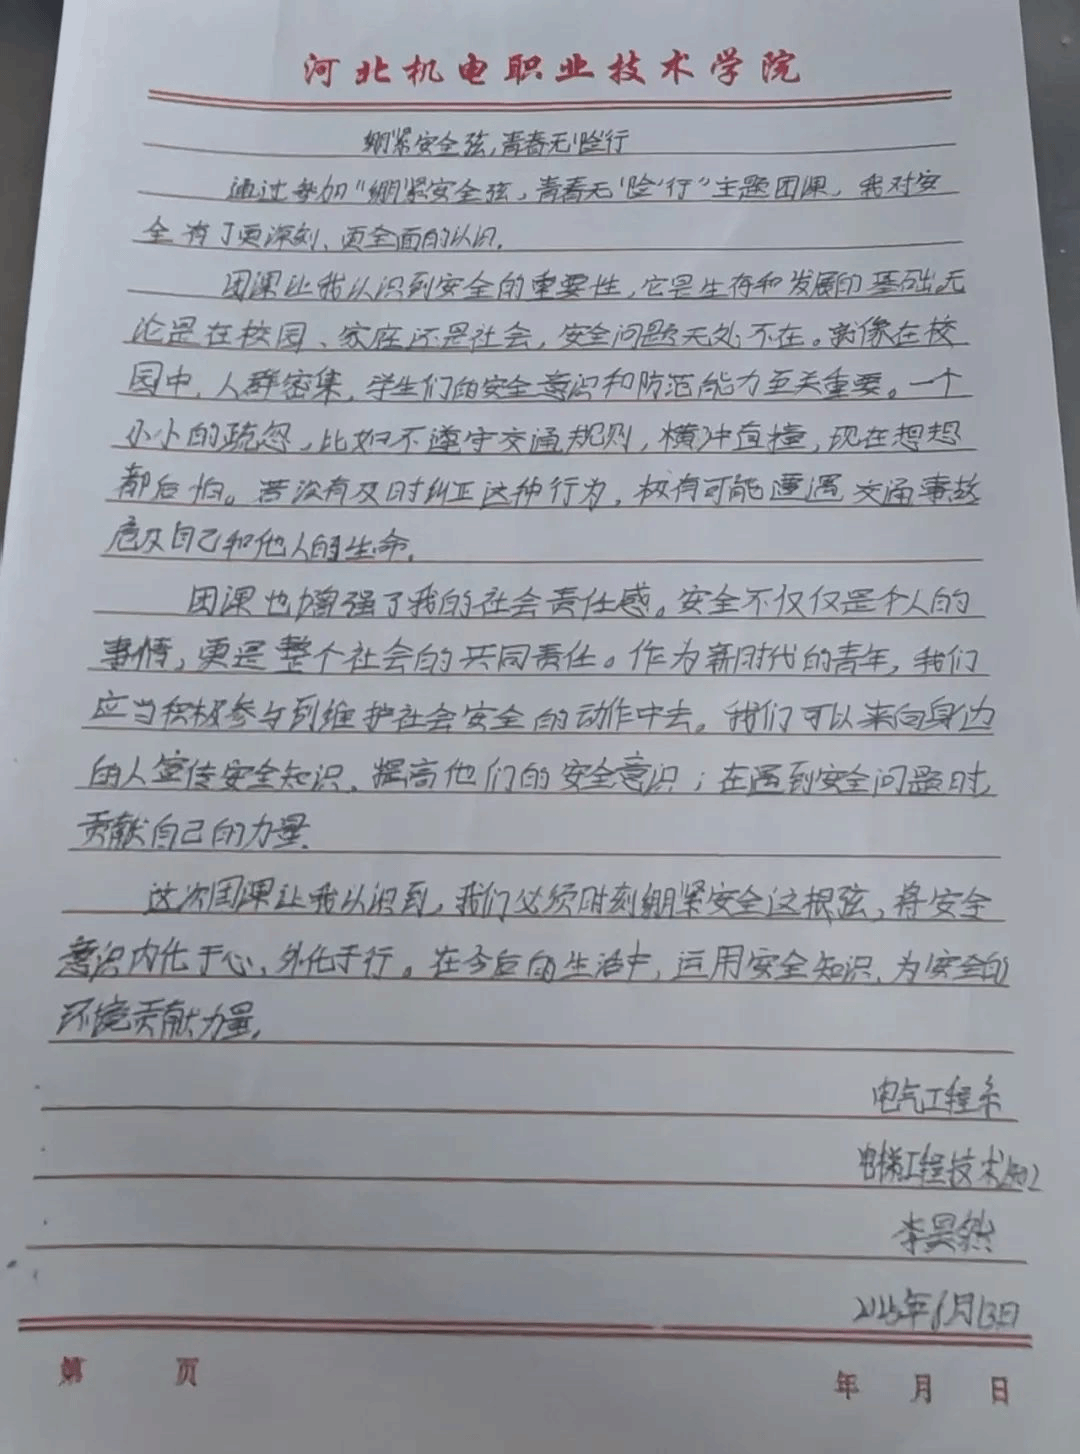 河北机电职业技术学院
绷紧安全弦,青春无'险'行
通过参加"绷紧安全弦,青春无'险'行"主题团课,我对安
全有了更深刻、更全面的认识.
团课让我认识到安全的重要性,它是生存和发展的基础.无
论是在校园、家庭还是社会,安全问题无处不在。就像在校
园中,人群密集,学生们的安全意识和防范能力至关重要。一个
小小的疏忽,比如不遵守交通规则,横冲直撞,现在想想
都后怕。若没有及时纠正这种行为,极有可能遭遇交通事故
危及自己和他人的生命.
团课也增强了我的社会责任感。安全不仅仅是个人的
事情,更是整个社会的共同责任。作为新时代的青年,我们
应当积极参与到维护社会安全的动作中去。我们可以来向身边
的人宣传安全知识,提高他们的安全意识;在遇到安全问题时,
贡献自己的力量.
这次团课让我认识到,我们必须时刻绷紧安全这根弦,将安全
意识内化于心,外化于行。在今后的生活中,运用安全知识,为安全的
环境贡献力量.
电气工程系
电梯工程技术
李昊然
年6月13日
第 页 年 月 日